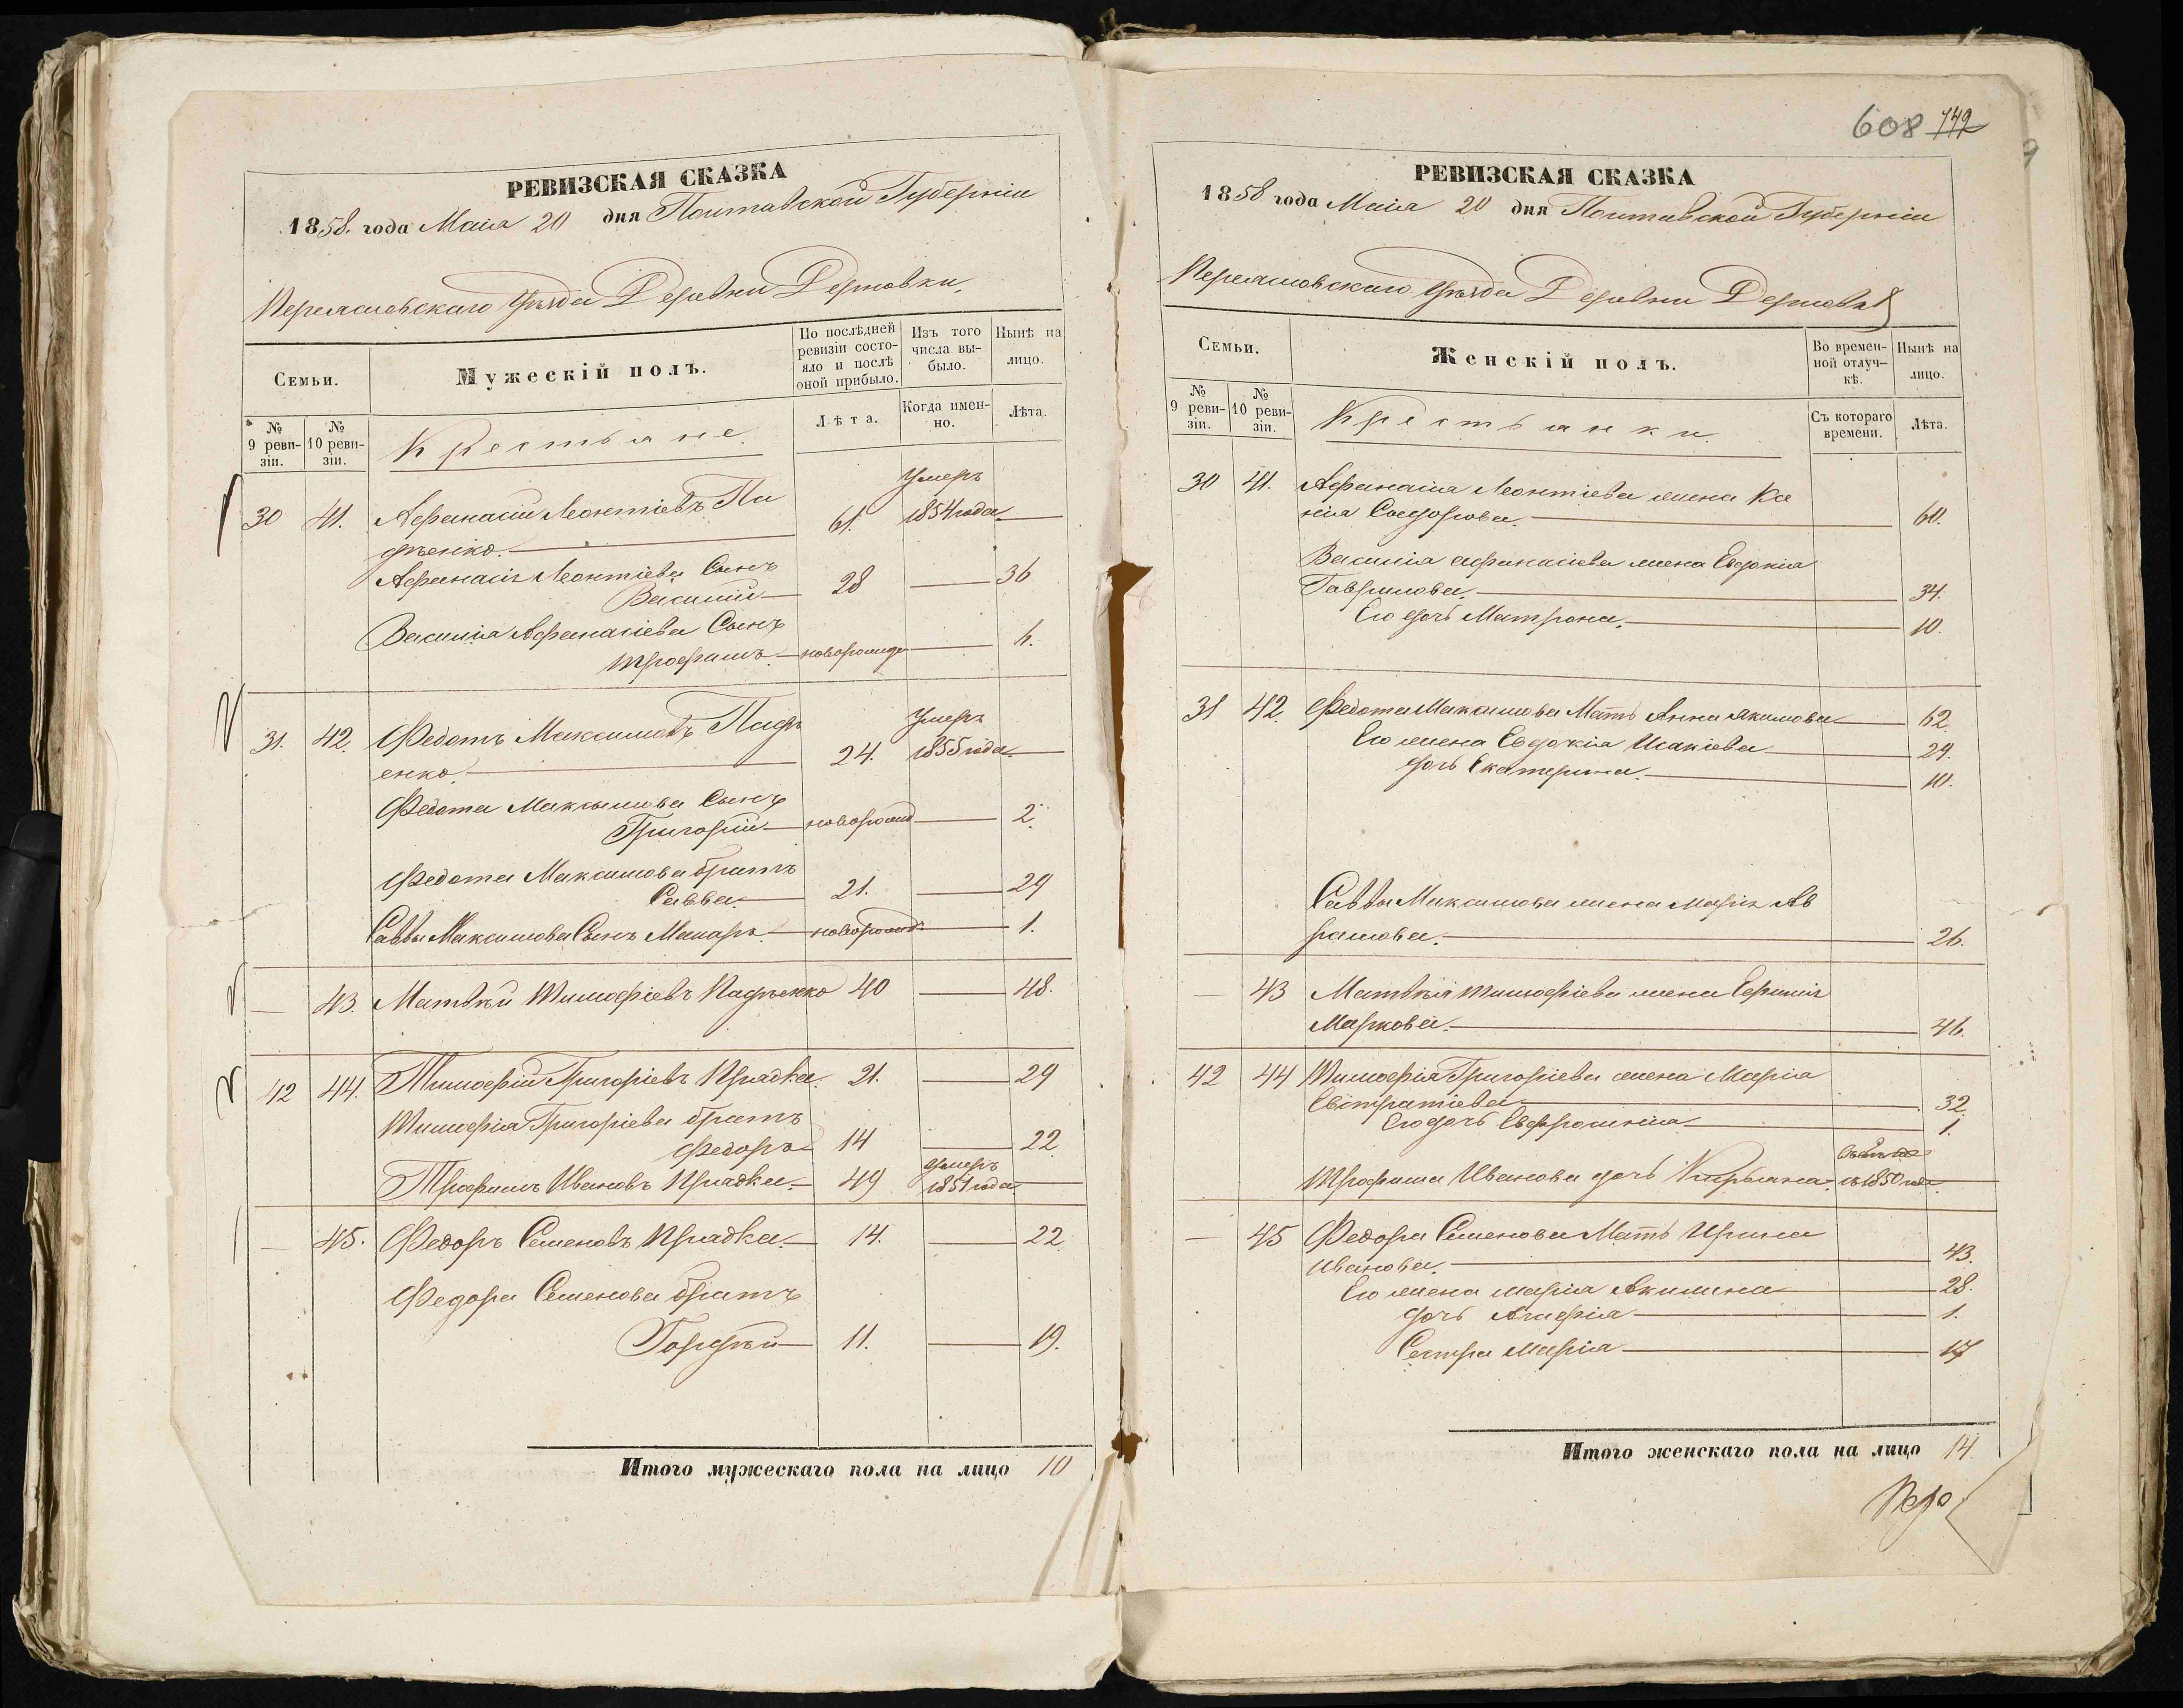 РЕВИЗСКАЯ СКАЗКА
1858. года Маия 20 дня Полтавской Губерніи
Переяславскаго уѣзда Деревни Дерновки.
Семьи.
Мужескій полъ.
По послѣдней ревизіи состояло и послѣ оной прибыло.
Изъ того числа выбыло.
Нынѣ на лицо.
№ 9 ревизіи.
№ 10 ревизіи.
Крестьяне.
Лѣта.
Когда именно.
Лѣта.
Умеръ
30 41. Афанасій Леонтіевъ Па 61. 1854 года
дѣенко.
Афанасія Леонтіева Сынъ
Василій 28 36
Василія Афанасіева Сынъ
Трофимъ новорожде 6.
Умеръ
31. 42. Федотъ Максимовъ Падѣ 24. 1855 года
енко.
Федота Максимова Сынъ
Григорій новорожд 2.
Федота Максимова братъ
Савва 21. 29
Саввы Максимова Сынъ Макаръ новорожд. 1.
— 43. Матвѣй Тимофіевъ Падѣенко 40 48.
42 44. Тимофій Григоріевъ Прядка 21. 29
Тимофія Григоріева братъ
Федоръ 14 22
умеръ
Трофимъ Ивановъ Прядка 49 1851 года
— 45. Федоръ Семеновъ Прядка 14. 22
Федора Семенова братъ
Гордѣй 11. 19.
Итого мужескаго пола на лицо 10
608 742
РЕВИЗСКАЯ СКАЗКА
1858 года Маия 20 дня Полтавской Губерніи
Переяславскаго уѣзда Деревни Дерновки
Семьи.
Женскій полъ.
Во временной отлучкѣ.
Нынѣ на лицо.
№ 9 ревизіи.
№ 10 ревизіи.
Крестьянки.
Съ котораго времени.
Лѣта.
30 41. Афанасія Леонтіева жена Ка
Сидорова. 60.
Василія Афанасіева жена Евдокія
Гаврилова. 34.
Его дочь Матрона. 10.
31 42. Федота Максимова Мать Анна Якимова 62
Его жена Евдокія Исакіева 29.
дочь Екатерина. 10.
Саввы Максимова жена Марія Ав
рамова. 26.
— 43 Матвѣя Тимофіева жена Ефимія
Маркова. 46.
42 44 Тимофія Григоріева жена Марія
Евстратіева 32
Его дочь Евфросинія 1.
Трофима Иванова дочь съ 1850 года
— 45 Федора Семенова Мать Ирина
Иванова. 43.
Его жена Марія Акимина 28.
дочь Агафія 1.
Сестра Марія 17
Итого женскаго пола на лицо 14